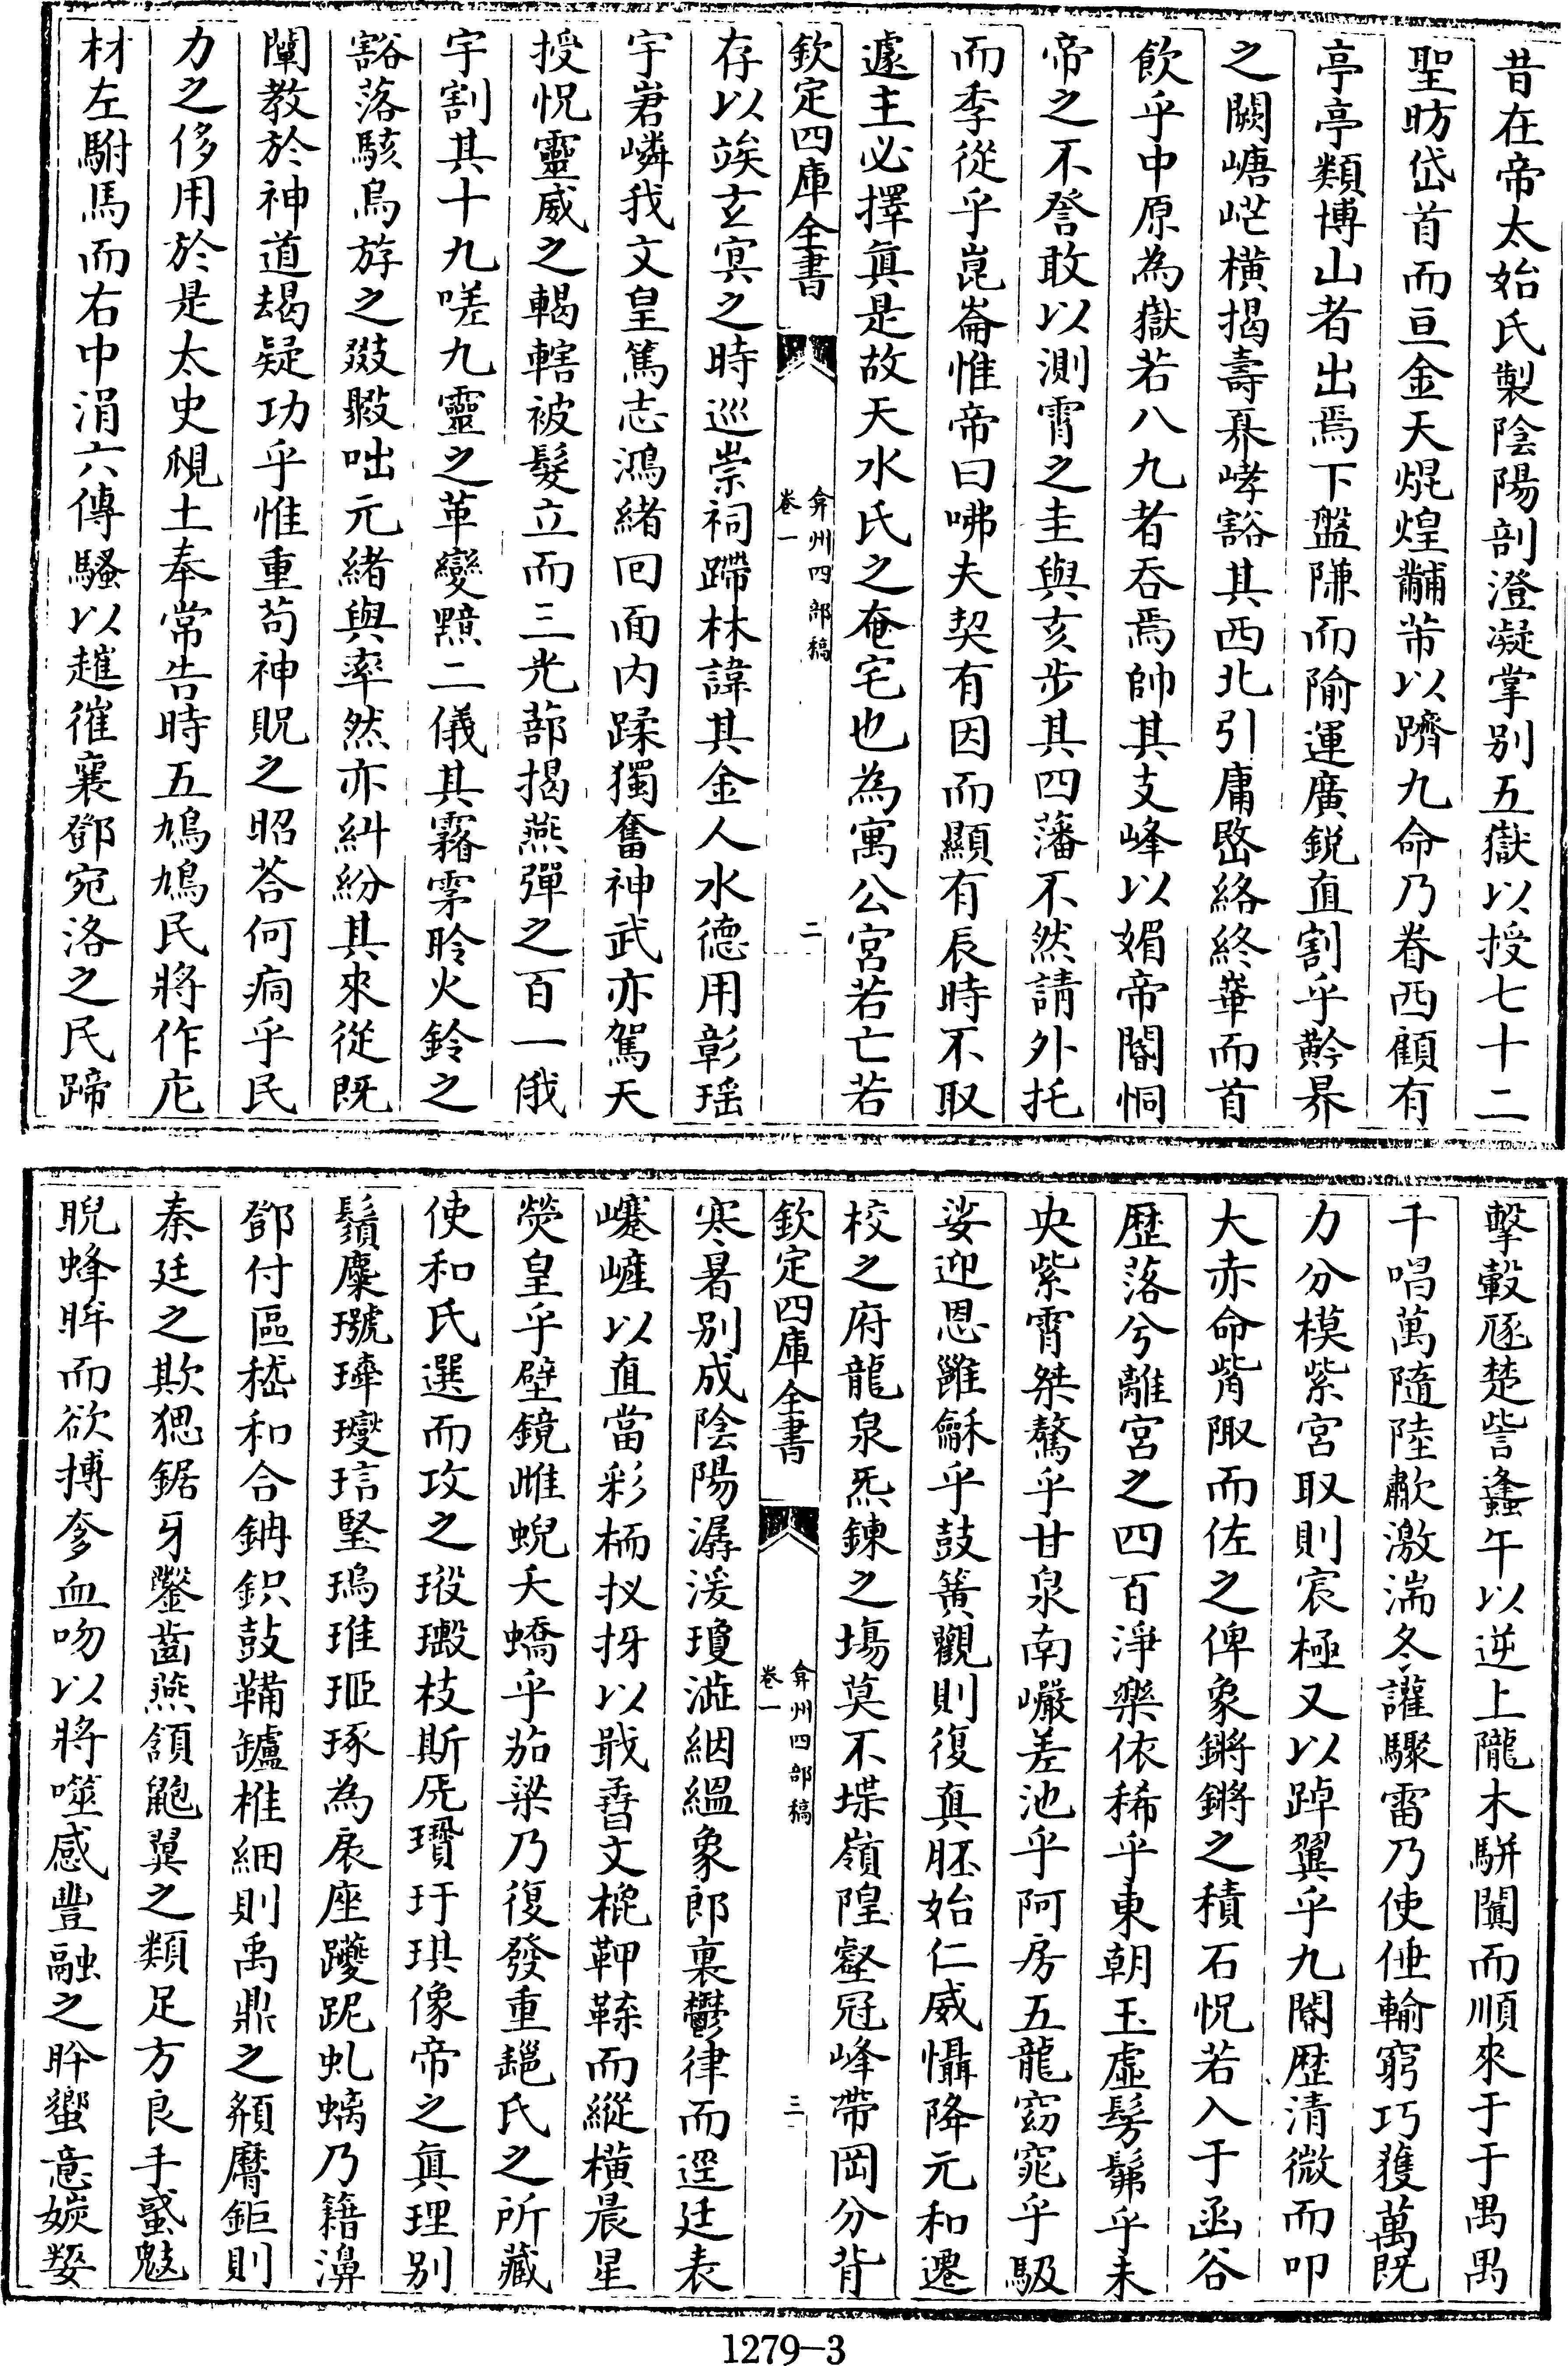 昔在帝太始氏製陰陽剖澄凝掌别五嶽以授七十二
聖昉岱首而亘金天焜煌黼芾以躋九命乃眷西顧有
亭亭類博山者出焉下盤㻩而隃運廣鋭直割乎黅界
之闕嵣𡵀横揭壽奡㟅豁其西北引庸㟭絡終華而首
飲乎中原為嶽若八九者吞焉帥其支峰以媚帝閽恫
帝之不詧敢以測霄之圭與亥步其四藩不然請外托
而季從乎崑崙惟帝曰咈夫契有因而顯有辰時不取
遽主必擇真是故天水氏之奄宅也為寓公宫若亡若
欽定四庫全書
弇州四部稿
卷一
二
存以竢玄㝠之時巡崇祠蹛林諱其金人水德用彰瑶
宇岧嶙我文皇篤志鴻緒囘面内蹂獨奮神武亦駕天
授怳靈威之轕轄被髮立而三光蔀揭燕彈之百一俄
宇割其十九嗟九靈之革變黰二儀其霿雺聆火鈴之
豁落駭鳥斿之㸚㸚咄元緒與率然亦糾紛其來從既
闡教於神道朅疑功乎惟重苟神貺之昭荅何痌乎民
力之侈用於是太史䙾土奉常告時五鳩鳩民將作庀
材左駙馬而右中涓六傳騷以趡催襄鄧宛洛之民蹄
擊轂豗楚訾蠭午以逆上隴木駢闐而順來于于禺禺
千唱萬隨陸歗激湍冬讙驟雷乃使倕輸窮巧獲萬既
力分模紫宮取則宸極又以踔翼乎九閽歴清微而叩
大赤命胔陬而佐之俾象鏘鏘之積石怳若入于函谷
歴落兮離宮之四百淨樂依稀乎東朝玉虛髣髴乎未
央紫霄桀驁乎甘泉南巖差池乎阿房五龍窈窕乎馺
娑迎恩雝龢乎鼓簧觀則復真胚始仁威懾降元和遷
校之府龍泉炁鍊之塲莫不堞嶺隍壑冠峰帶岡分背
欽定四庫全書
弇州四部稿
卷一
三
寒暑别成陰陽潺湲瓊漇絪縕象郎裏鬱律而逕廷表
㠾嵼以直當彩栭扠枒以戢孴文㮰鞞䩶而縱横晨星
熒皇乎壁鏡雌蜺夭蟜乎茄梁乃復發重䶮氏之所藏
使和氏選而攻之瑴璬枝斯㡿瓚玗琪像帝之真理别
鬚麋㻸㻶璎琂堅瑦琟㻏琢為扆座躨跜虬螭乃籍濞
鄧付區嵇和合鈉鉙鼓鞴鑪椎細則禹鼎之頫黂鉅則
秦廷之欺㥸鋸牙鑿齒燕頷鼩翼之類足方良手䘍魃
睨蜂眸而欲搏奓血吻以將噬感豐融之肸蠁意娭媐
1279-3